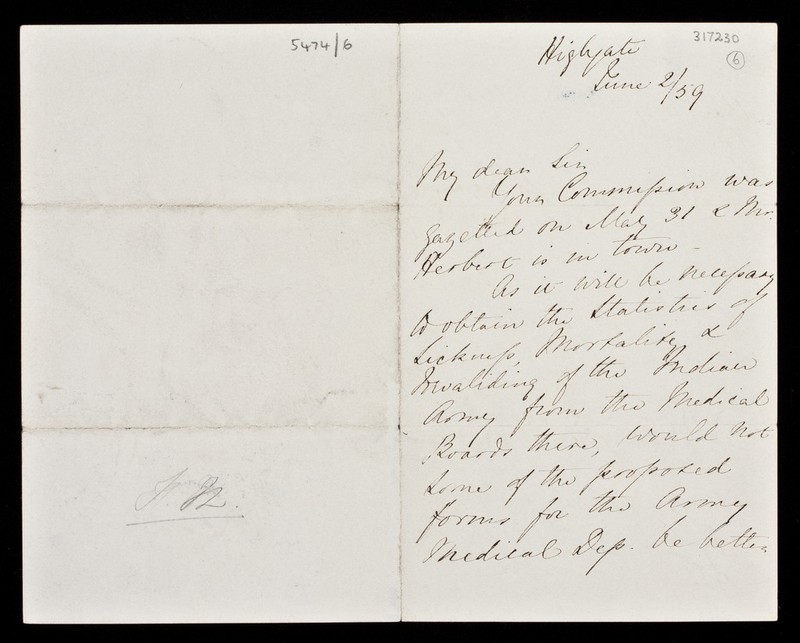 5474/6
F. N.
317230
6
Highgate
June 2/59
My dear Sir
Your Commission was
gazetted on May 31 & Mr.
Herbert is in town -
As it will be necessary
to obtain the Statistics of
Sickness, Mortality &
Invaliding of the Indian
Army from the Medical
Boards there, would not
some of the proposed
forms for the Army
Medical Dep. be better